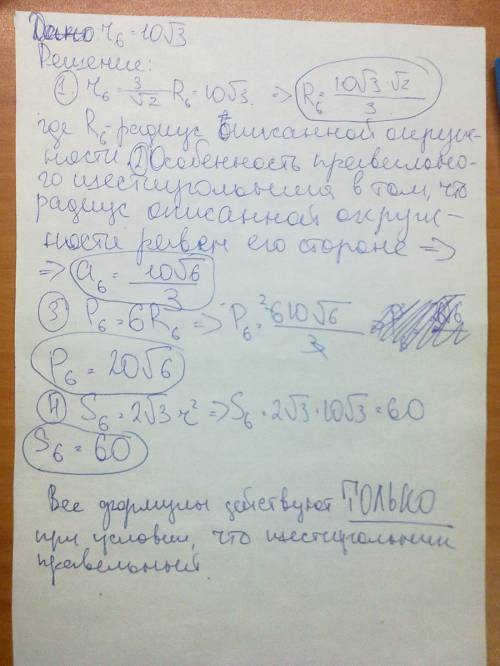 Дано r₆ = 10√3
Решение:
① r₆ = 3/√2 R₆ = 10√3 ⇒ R₆ = 10√3·√2/3
где R₆ - радиус описанной окруж-
ности ② Особенность правильно-
го шестиугольника в том, что
радиус описанной окруж-
ности равен его стороне ⇒
⇒ a₆ = 10√6/3
③ P₆ = 6R₆ ⇒ P₆ = 6·10√6/3
P₆ = 20√6
④ S₆ = 2√3 r² ⇒ S₆ = 2√3·10√3 = 60
S₆ = 60
Все формулы действуют ТОЛЬКО
при условии, что шестиугольник
правельный.